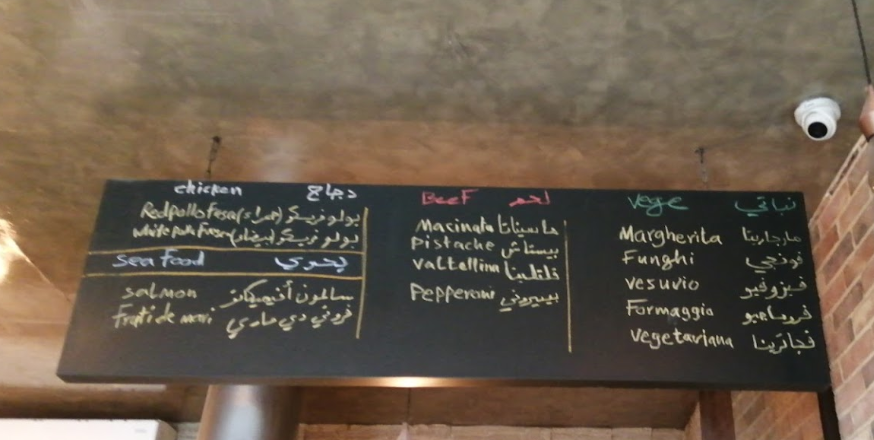 chicken دجاج
Red pollo Fresco (حمراء) بولو فريسكو
White pollo Fresco (بيضاء) بولو فريسكو
sea Food بحري
salmon سالمون
Frøti de mari فروتي دي ماري
Beef لحم
Macinata ماسيناتا
Pistache بيستاش
Valtellina فلتلينا
Pepperoni بيبروني
Vege نباتي
Margherita مارجاريتا
Funghi فونجي
Vesuvio فيزوفيو
Formaggio فروماجيو
Vegetariana فجاترينا